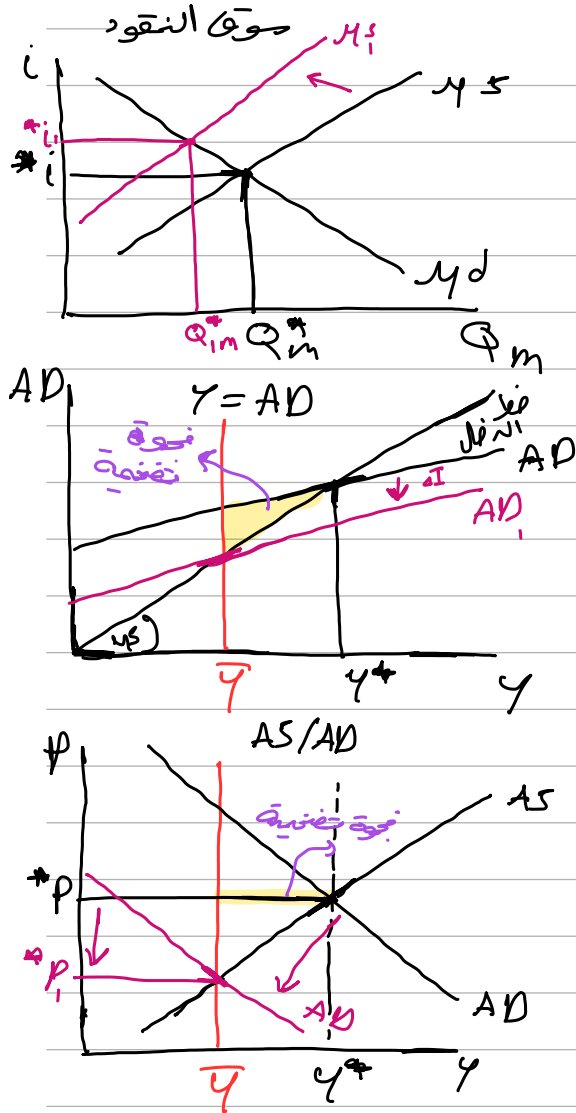 سوق النقود
Mˢ₁
i
MS
*i₁
*i
Md
Q*₁m
Q*m
Qm
AD
Y = AD
خط
الدخل
فجوة
تضخمية
AD
ΔI
AD₁
45
Y̅
Y*
Y
P
AS/AD
AS
فجوة تضخمية
*P
*P₁
AD
AD
Y̅
Y*
Y